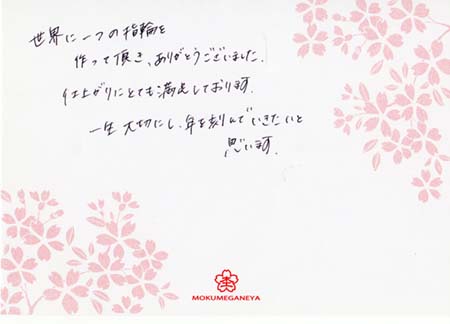 世界に一つの指輪を
作って頂き、ありがとうございました。
仕上がりにとても満足しております。
一生大切にし、年を刻んでいきたいと
思います。
MOKUMEGANEYA